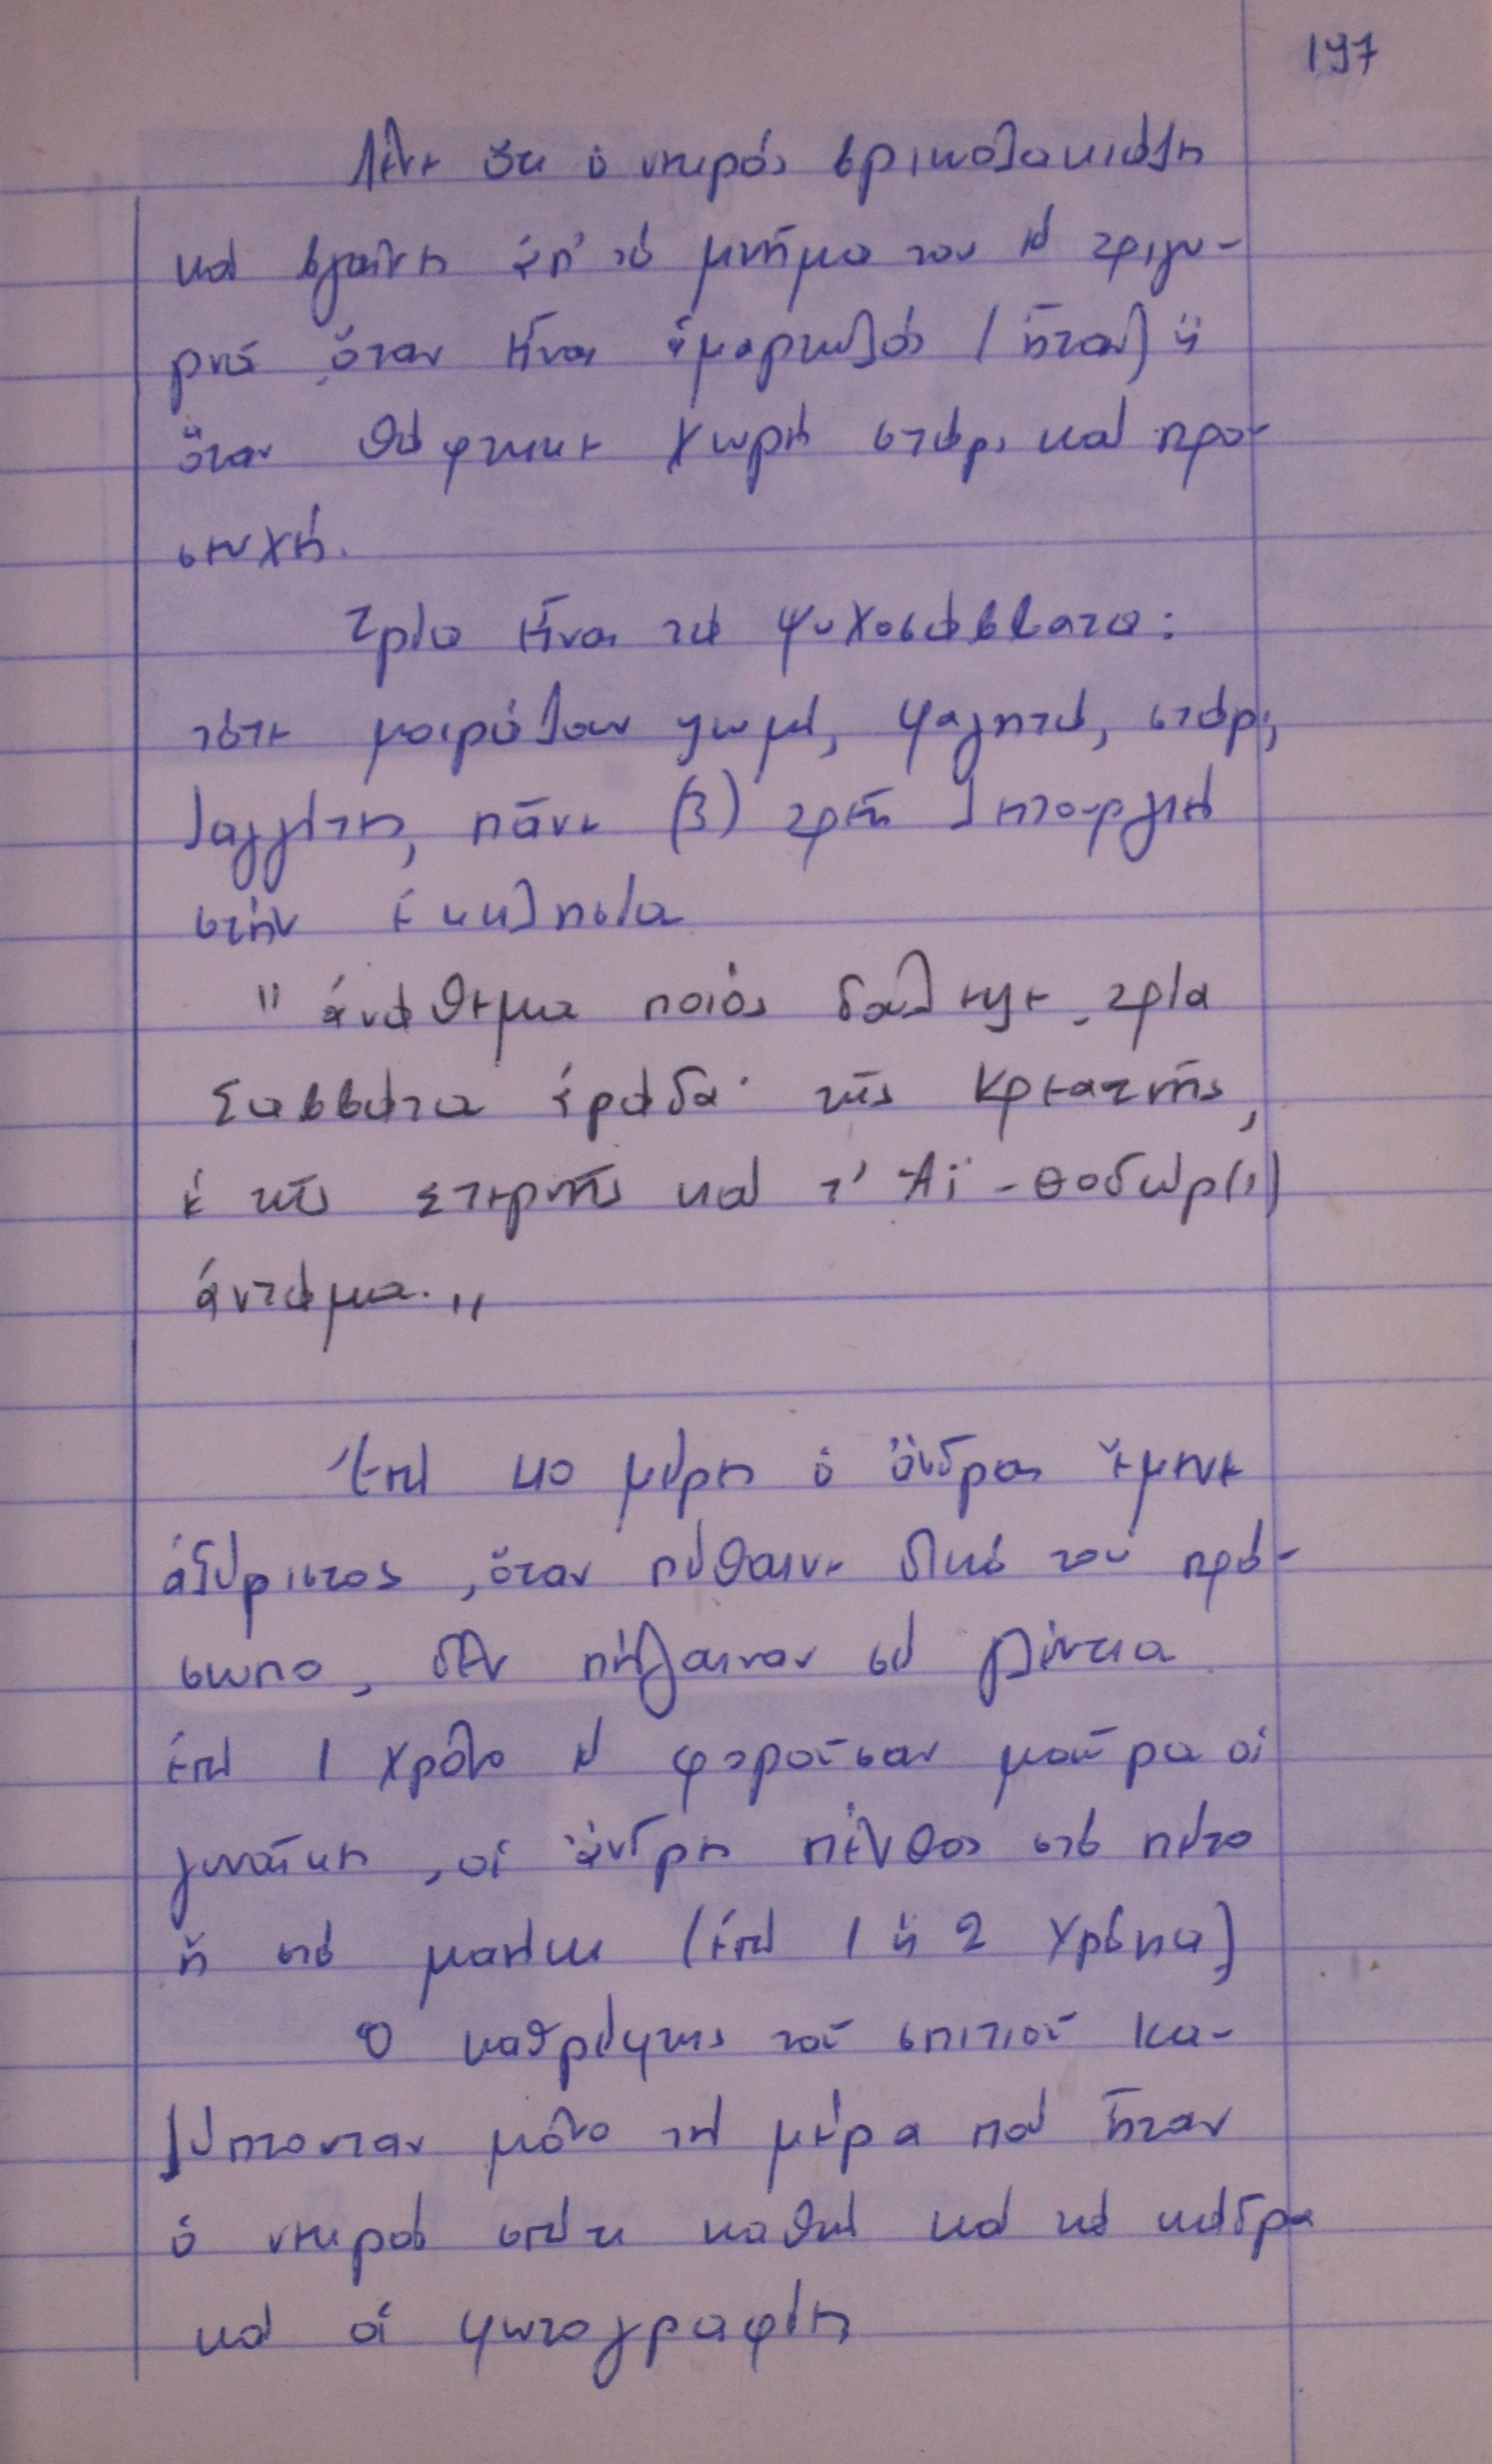 197
Λένε ὅτι ὁ νεκρός βρικολακιάζει
καί βγαίνει ἀπ' τό μνῆμα του κί τριγυ-
ρνά, ὅταν εἶναι ἁμαρτωλός (ἦταν) ἤ
ὅταν θάφτηκε χωρίς στάρι καί προ-
σευχή.
Τρία εἶναι τά ψυχοσάββατα:
τότε μοιράζουν ψωμί, φαγητό, στάρι,
λαγγίτες, πᾶνε (3) τρεῖς λειτουργίες
στήν ἐκκλησία
"ἀνάθεμα ποιός δούλεψε τρία
Σαββάτα ἀράδα· τῆς Κρεατνῆς,
κ τῆς Στερνῆς καί τ' Ἁϊ-Θοδώρ(ι)
ἀντάμα."
Ἐπί 40 μέρες ὁ ἄνδρας ἔμενε
ἀξύριστος, ὅταν πέθαινε δικό του πρό-
σωπο, δέν πήγαιναν σέ γλέντια
ἐπί 1 χρόνο κί φοροῦσαν μαῦρα οἱ
γυναῖκες, οἱ ἄνδρες πένθος στό πέτο
ἤ στό μανίκι (ἐπί 1 ἤ 2 χρόνια)
Ὁ καθρέφτης τοῦ σπιτιοῦ κα-
λύπτονταν μόνο τή μέρα πού ἦταν
ὁ νεκρός σπίτι καθώς καί τά κάδρα
καί οἱ φωτογραφίες